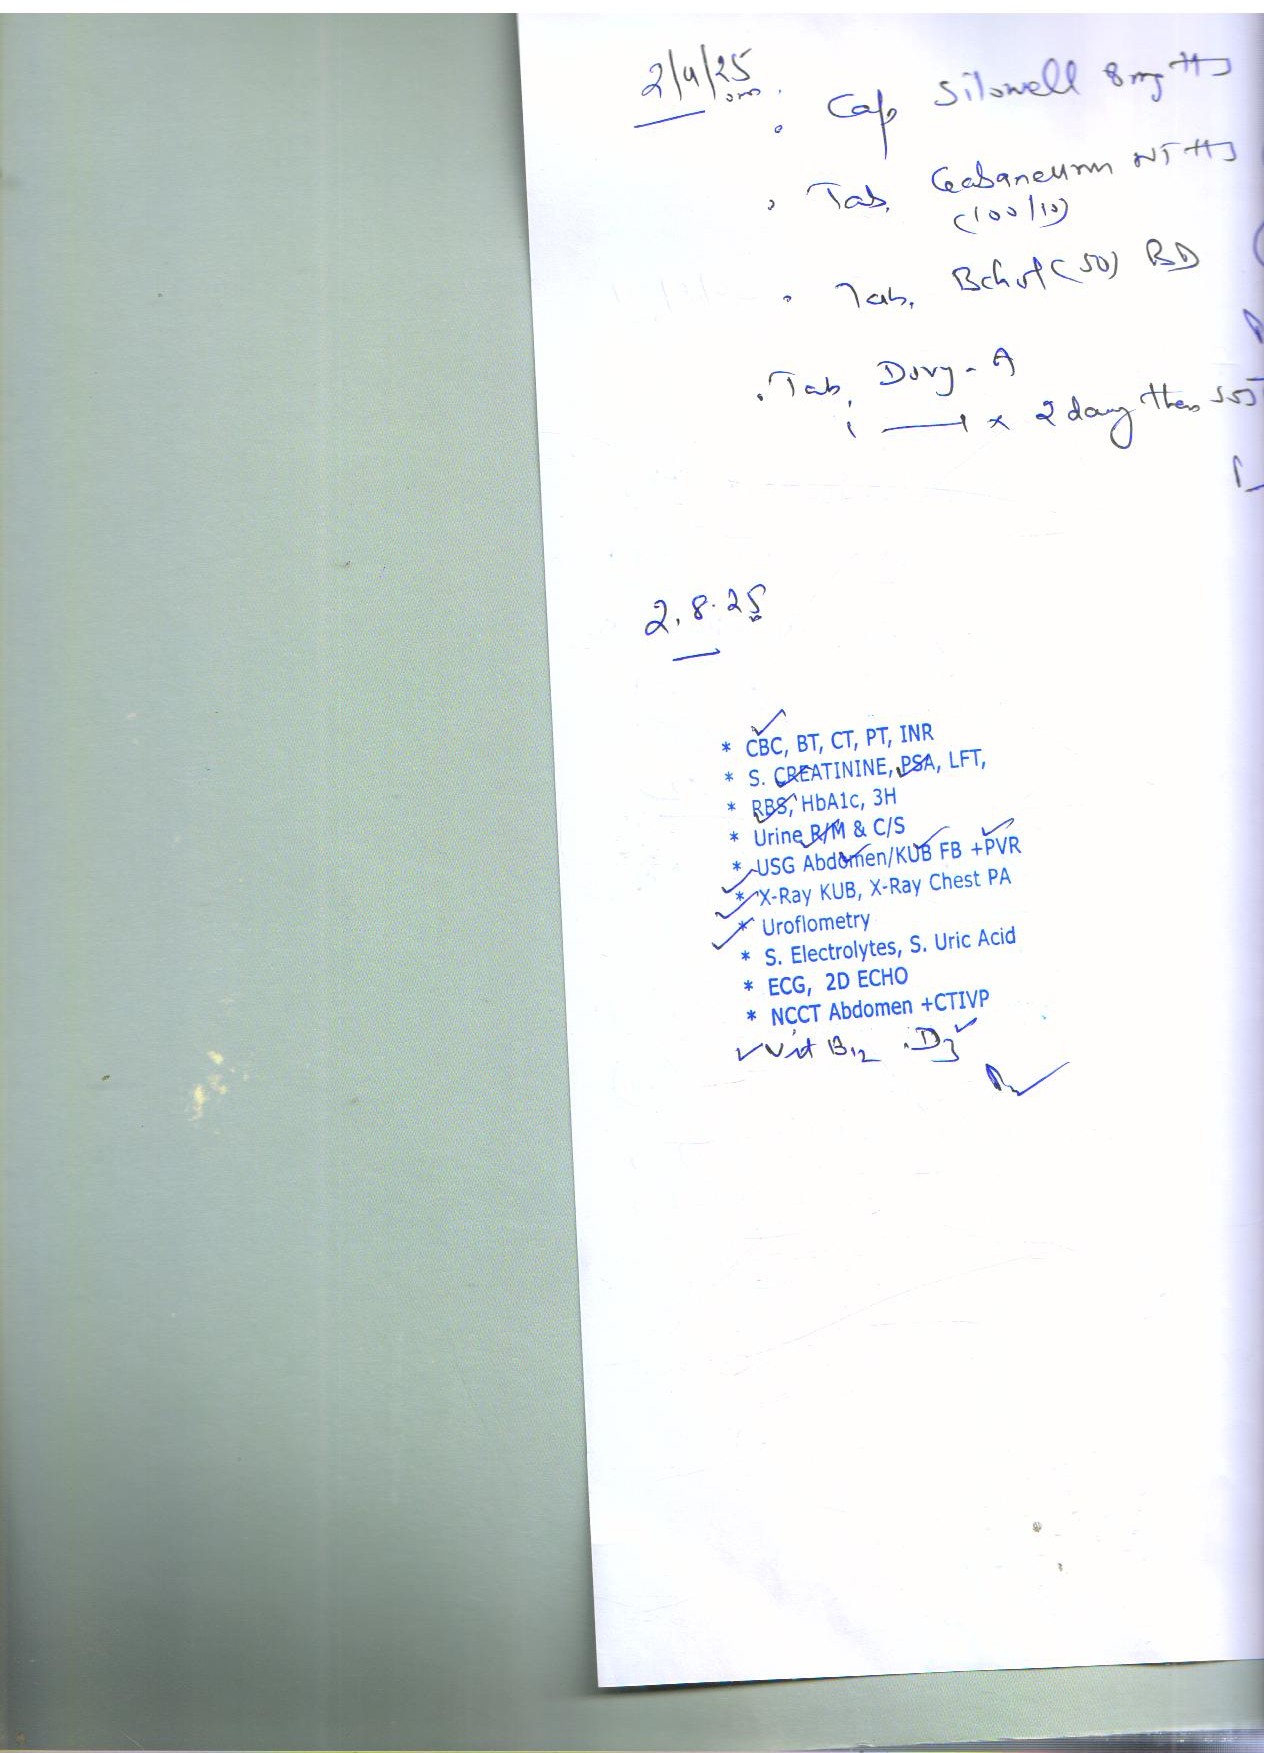 2/4/25
Cap Silowell 8mg HS
Tab. Gabaneuron NT HS
(100/10)
Tab. (50) BD
Tab. - A
1 —— 1 x 2 day then SOS
2.8.25
* CBC, BT, CT, PT, INR
* S. CREATININE, PSA, LFT,
* RBS, HbA1c, 3H
* Urine R/M & C/S
* USG Abdomen/KUB FB +PVR
* X-Ray KUB, X-Ray Chest PA
* Uroflometry
* S. Electrolytes, S. Uric Acid
* ECG, 2D ECHO
* NCCT Abdomen +CTIVP
Vit B12 . D3